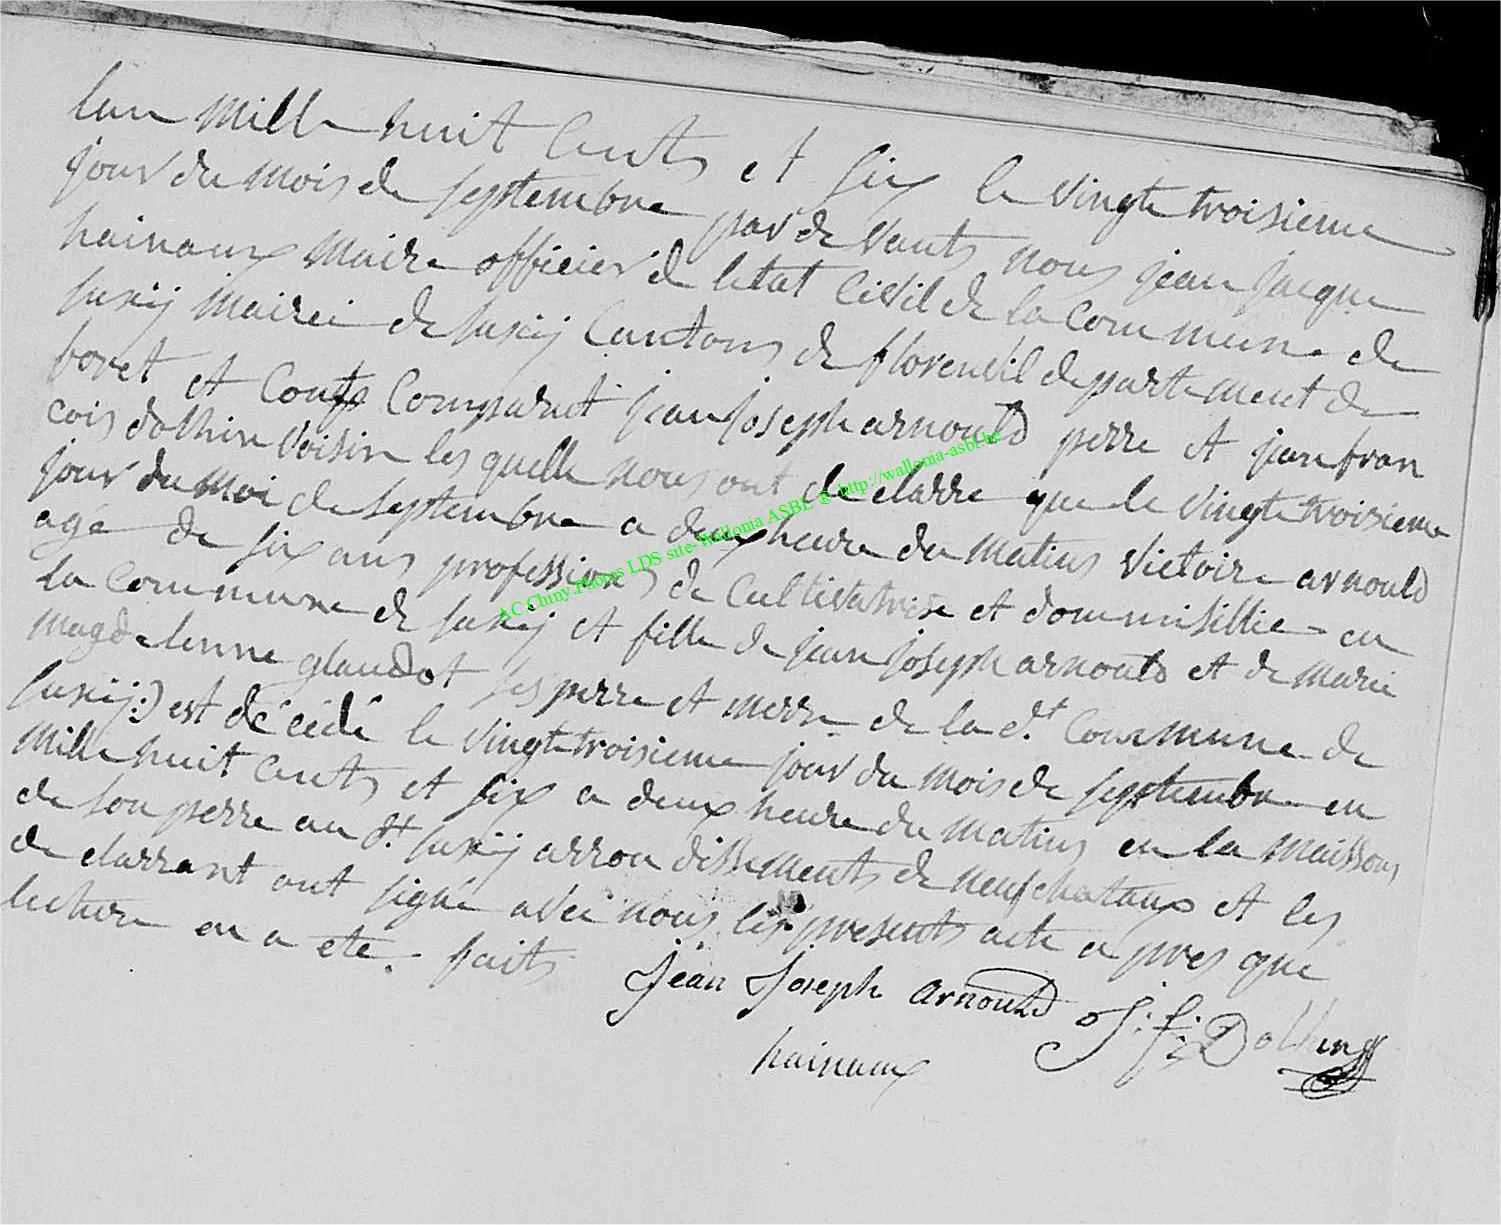 lan mille huit cents et six le vingte troisieme
jour du mois de septembre par de vants nous jean jacque
hainaux maire officier de letat civil de la commune de
suxÿ mairei de suxÿ cantons de florenvil departement de
foret et comparut jean joseph arnould perre et jean fran
cois dothin voisin les quelle nous ont de clarre que le vingte troisieme
jour du moi de septembre a deux heure du matins victoire arnould
agé de six ans profession de cultivatrise et dommisilliè en
la commune de suxÿ et fille de jean joseph arnould et de marie
magdelenne glaudot ses perre et merre de la d.t commune de
suxÿ:) est décédé le vingte troisieme jour du mois de septembre en
mille huit cents et six a deux heure du matins en la maissons
de son perre au d.t suxÿ arron dissements de neufchataux et les
de clarrant ont signé avec nous les presents acte a pres que
lecture en a eté. faits
jean Joseph arnould J: f: Dothin
hainaux
AC Chiny.Photos LDS site-Wallonia ASBL @ http://wallonia-asbl.be